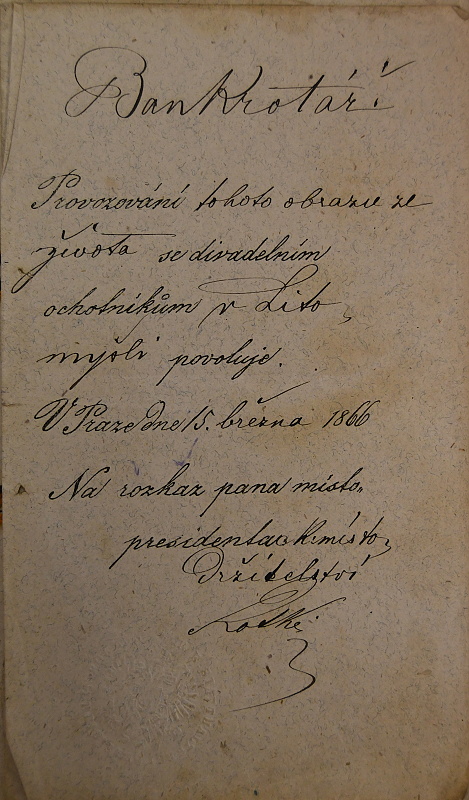 Bankrotář.
Provozování tohoto obrazu ze
života se divadelním
ochotníkům v Lito-
myšli povoluje.
V Praze dne 15. března 1866
Na rozkaz pana místo-
presidenta c. k. místo-
držitelství